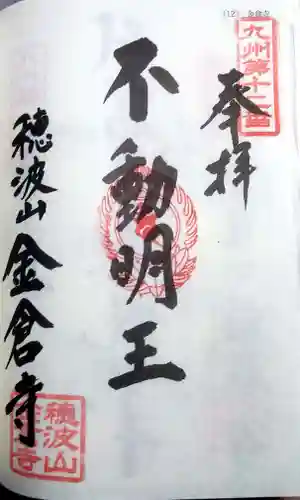 (12) 金倉寺
九州第十二番
奉拝
不動明王
穂波山
金倉寺
穂波山
金倉寺